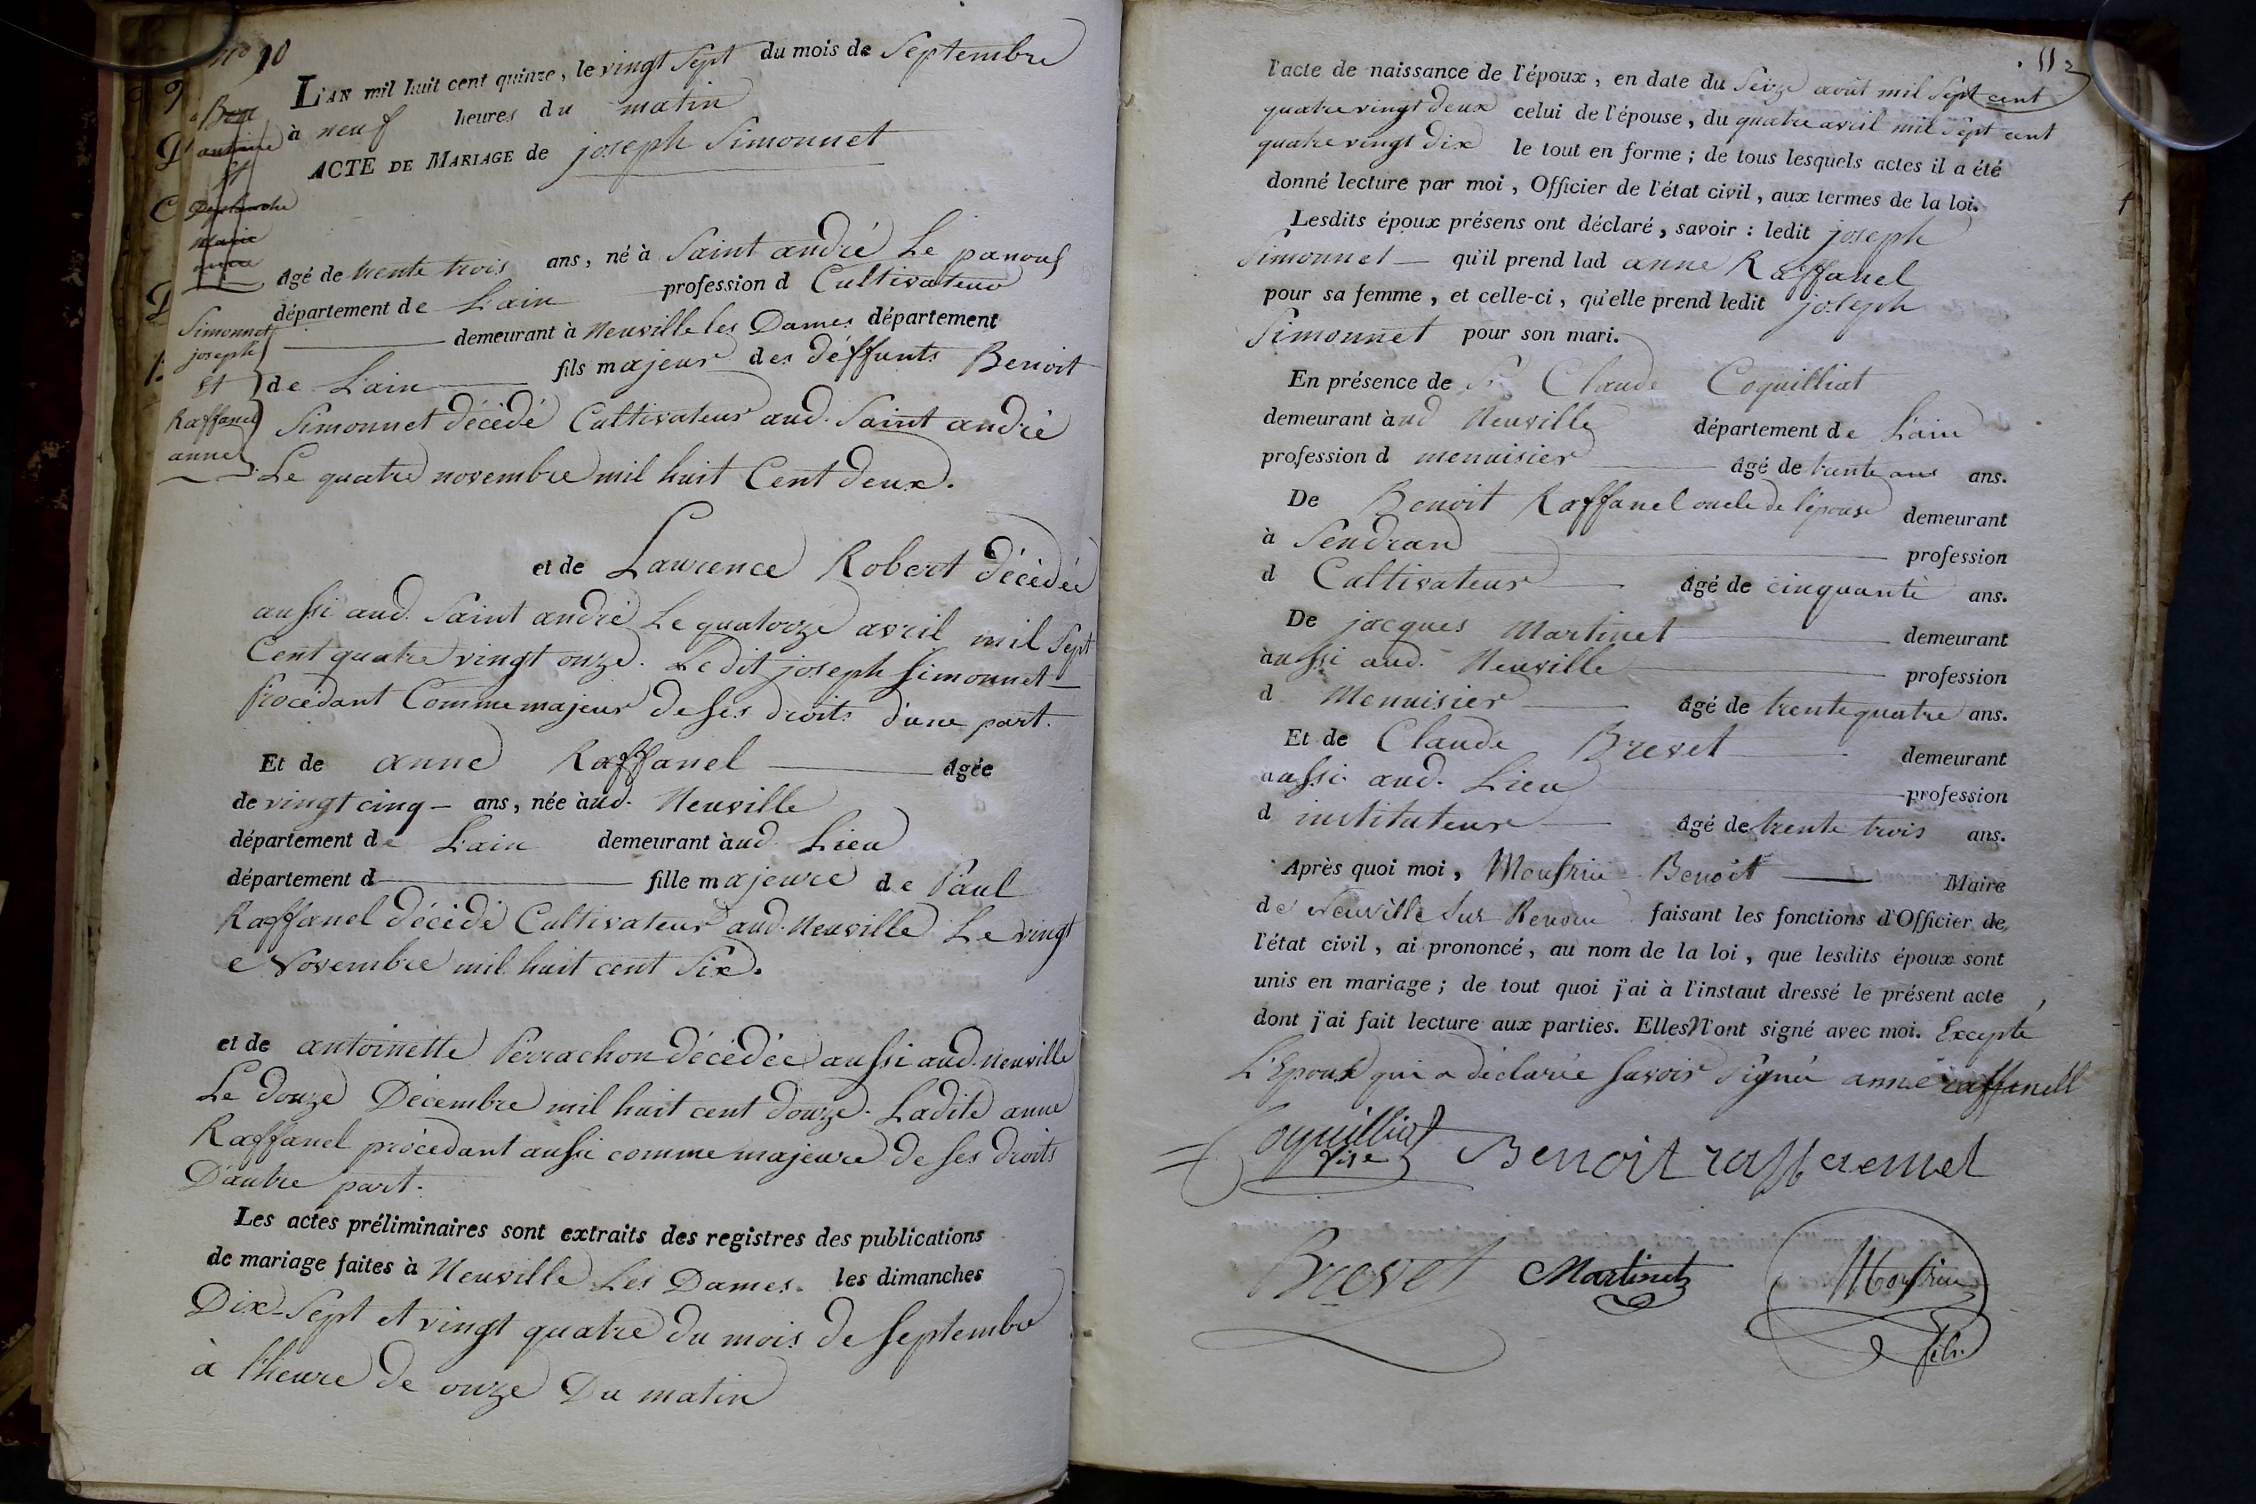 no 10
L'AN mil huit cent quinze, le vingt Sept du mois de Septembre
à neuf heures du matin
ACTE DE MARIAGE de joseph Simonnet
Agé de trente trois ans, né à Saint andré Le panoux
département de L'ain profession d Cultivateur
demeurant à Neuville les Dames département
de L'ain fils majeur des déffunts Benoit
Simonnet décédé Cultivateur aud. Saint andré
Le quatre novembre mil huit Cent deux.
Simonnet
joseph
Et
Raffanel
anne
et de Laurence Robert décédée
aussi aud. Saint andré Le quatorze avril mil Sept
Cent quatre vingt onze. Ledit joseph Simonnet
procédant Comme majeur de ses droits d'une part.
Et de anne Raffanel Agée
de vingt cinq ans, née àud. Neuville
département de L'ain demeurant àud. Lieu
département d fille majeure de Paul
Raffanel décédé Cultivateur aud. Neuville Le vingt
e Novembre mil huit cent Six.
et de antoinette Perrachon décédée aussi aud. Neuville
Le douze Décembre mil huit cent douze. Ladite anne
Raffanel procédant aussi comme majeure de ses droits
D'autre part.
Les actes préliminaires sont extraits des registres des publications
de mariage faites à Neuville Les Dames. les dimanches
Dix-Sept et vingt quatre du mois de Septembre
à l'heure de onze Du matin
112
l'acte de naissance de l'époux, en date du Seize août mil Sept cent
quatre vingt deux celui de l'épouse, du quatre avril mil Sept cent
quatre vingt dix le tout en forme; de tous lesquels actes il a été
donné lecture par moi, Officier de l'état civil, aux termes de la loi.
Lesdits époux présens ont déclaré, savoir : ledit joseph
Simonnet qu'il prend lad anne Raffanel
pour sa femme, et celle-ci, qu'elle prend ledit joseph
Simonnet pour son mari.
En présence de Sr. Claude Coquilliat
demeurant àud Neuville département de L'ain
profession d menuisier Agé de trente ans ans.
De Benoit Raffanel oncle de l'épouse demeurant
à Sendran profession
d Cultivateur Agé de cinquante ans.
De jacques Martinet demeurant
àussi aud. Neuville profession
d Menuisier Agé de trente quatre ans.
Et de Claude Brevet demeurant
aussi aud. Lieu profession
d instituteur Agé de trente trois ans.
Après quoi moi, Benoit Maire
de Neuville Sur Renom faisant les fonctions d'Officier de
l'état civil, ai prononcé, au nom de la loi, que lesdits époux sont
unis en mariage; de tout quoi j'ai à l'instant dressé le présent acte
dont j'ai fait lecture aux parties. Elles l'ont signé avec moi. Excepté
L'Epoux qui a déclarée savoir signée anne raffanell
Coquilliat
Benoit raffenel
Brevet Martinet